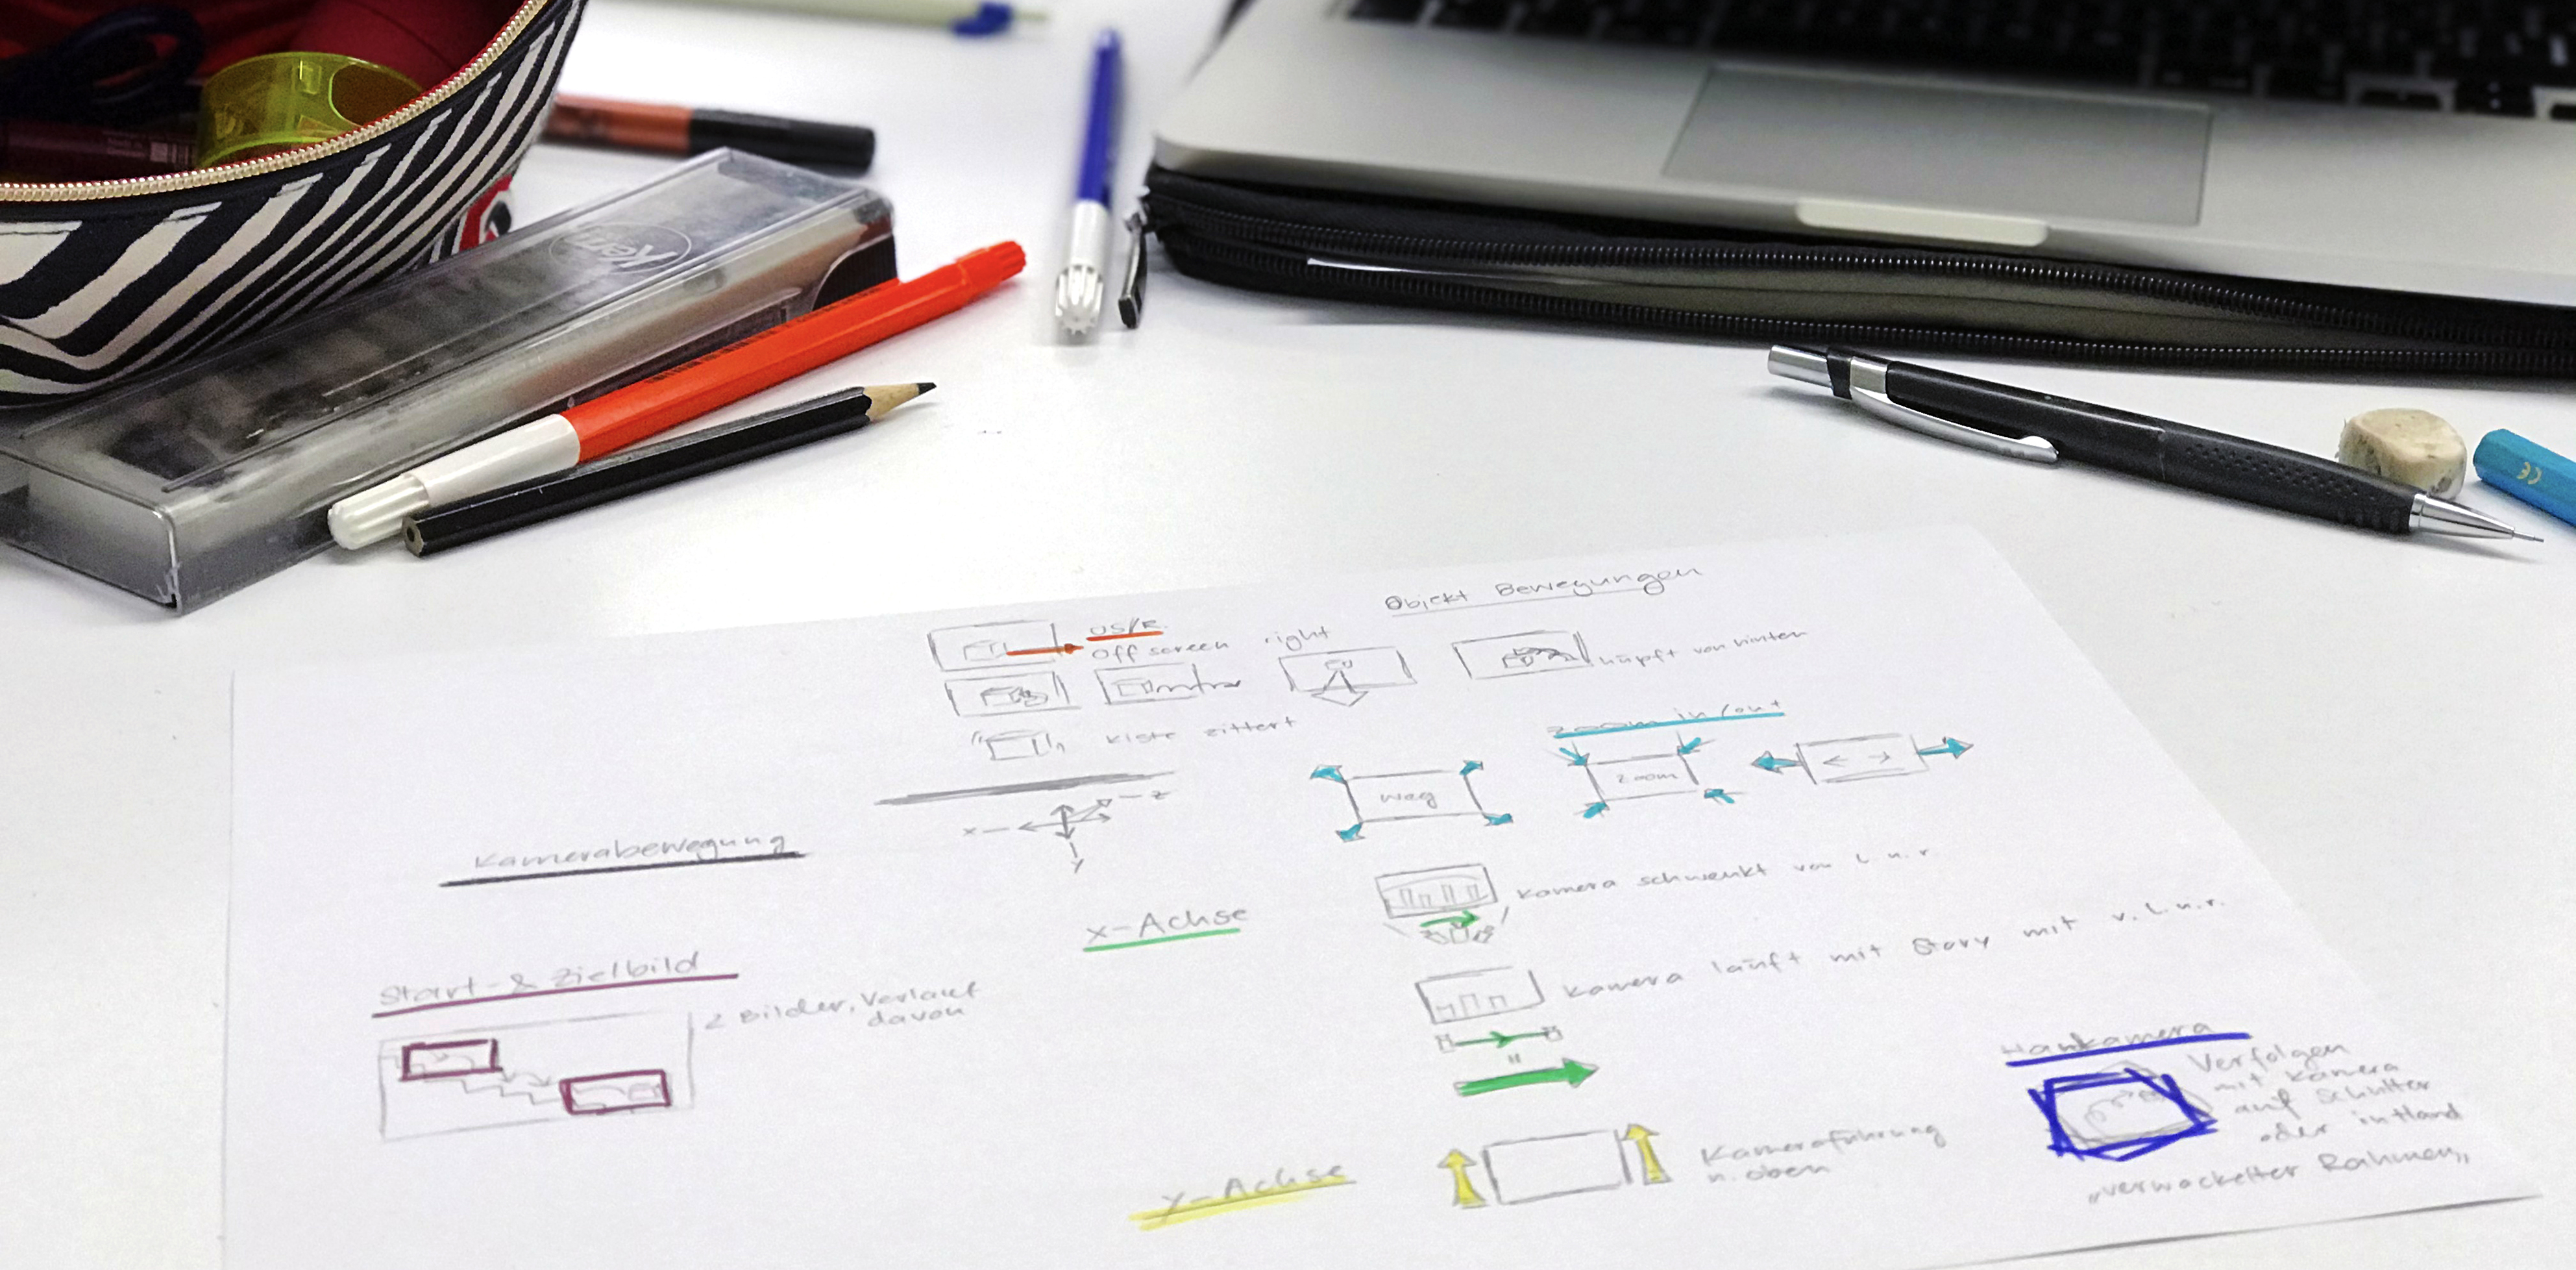 Objekt Bewegungen
OS/R
Off screen right
hüpft von hinten
Kiste zittert
zoom in/out
weg
zoom
x
y
z
Kamerabewegung
x-Achse
Kamera schwenkt von l.n.r
Kamera läuft mit Story mit v.l.n.r.
"
Start- & Zielbild
2 Bilder, Verlauf
davon
Hankamera
Verfolgen
mit Kamera
auf Schulter
oder in Hand
„verwackelter Rahmen„
y-Achse
Kameraführung
n. oben